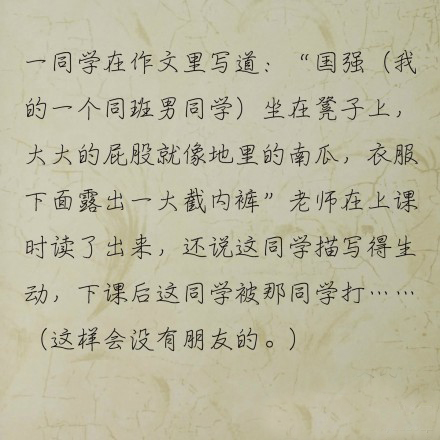 一同学在作文里写道：“国强（我
的一个同班男同学）坐在凳子上，
大大的屁股就像地里的南瓜，衣服
下面露出一大截内裤”老师在上课
时读了出来，还说这同学描写得生
动，下课后这同学被那同学打……
（这样会没有朋友的。）